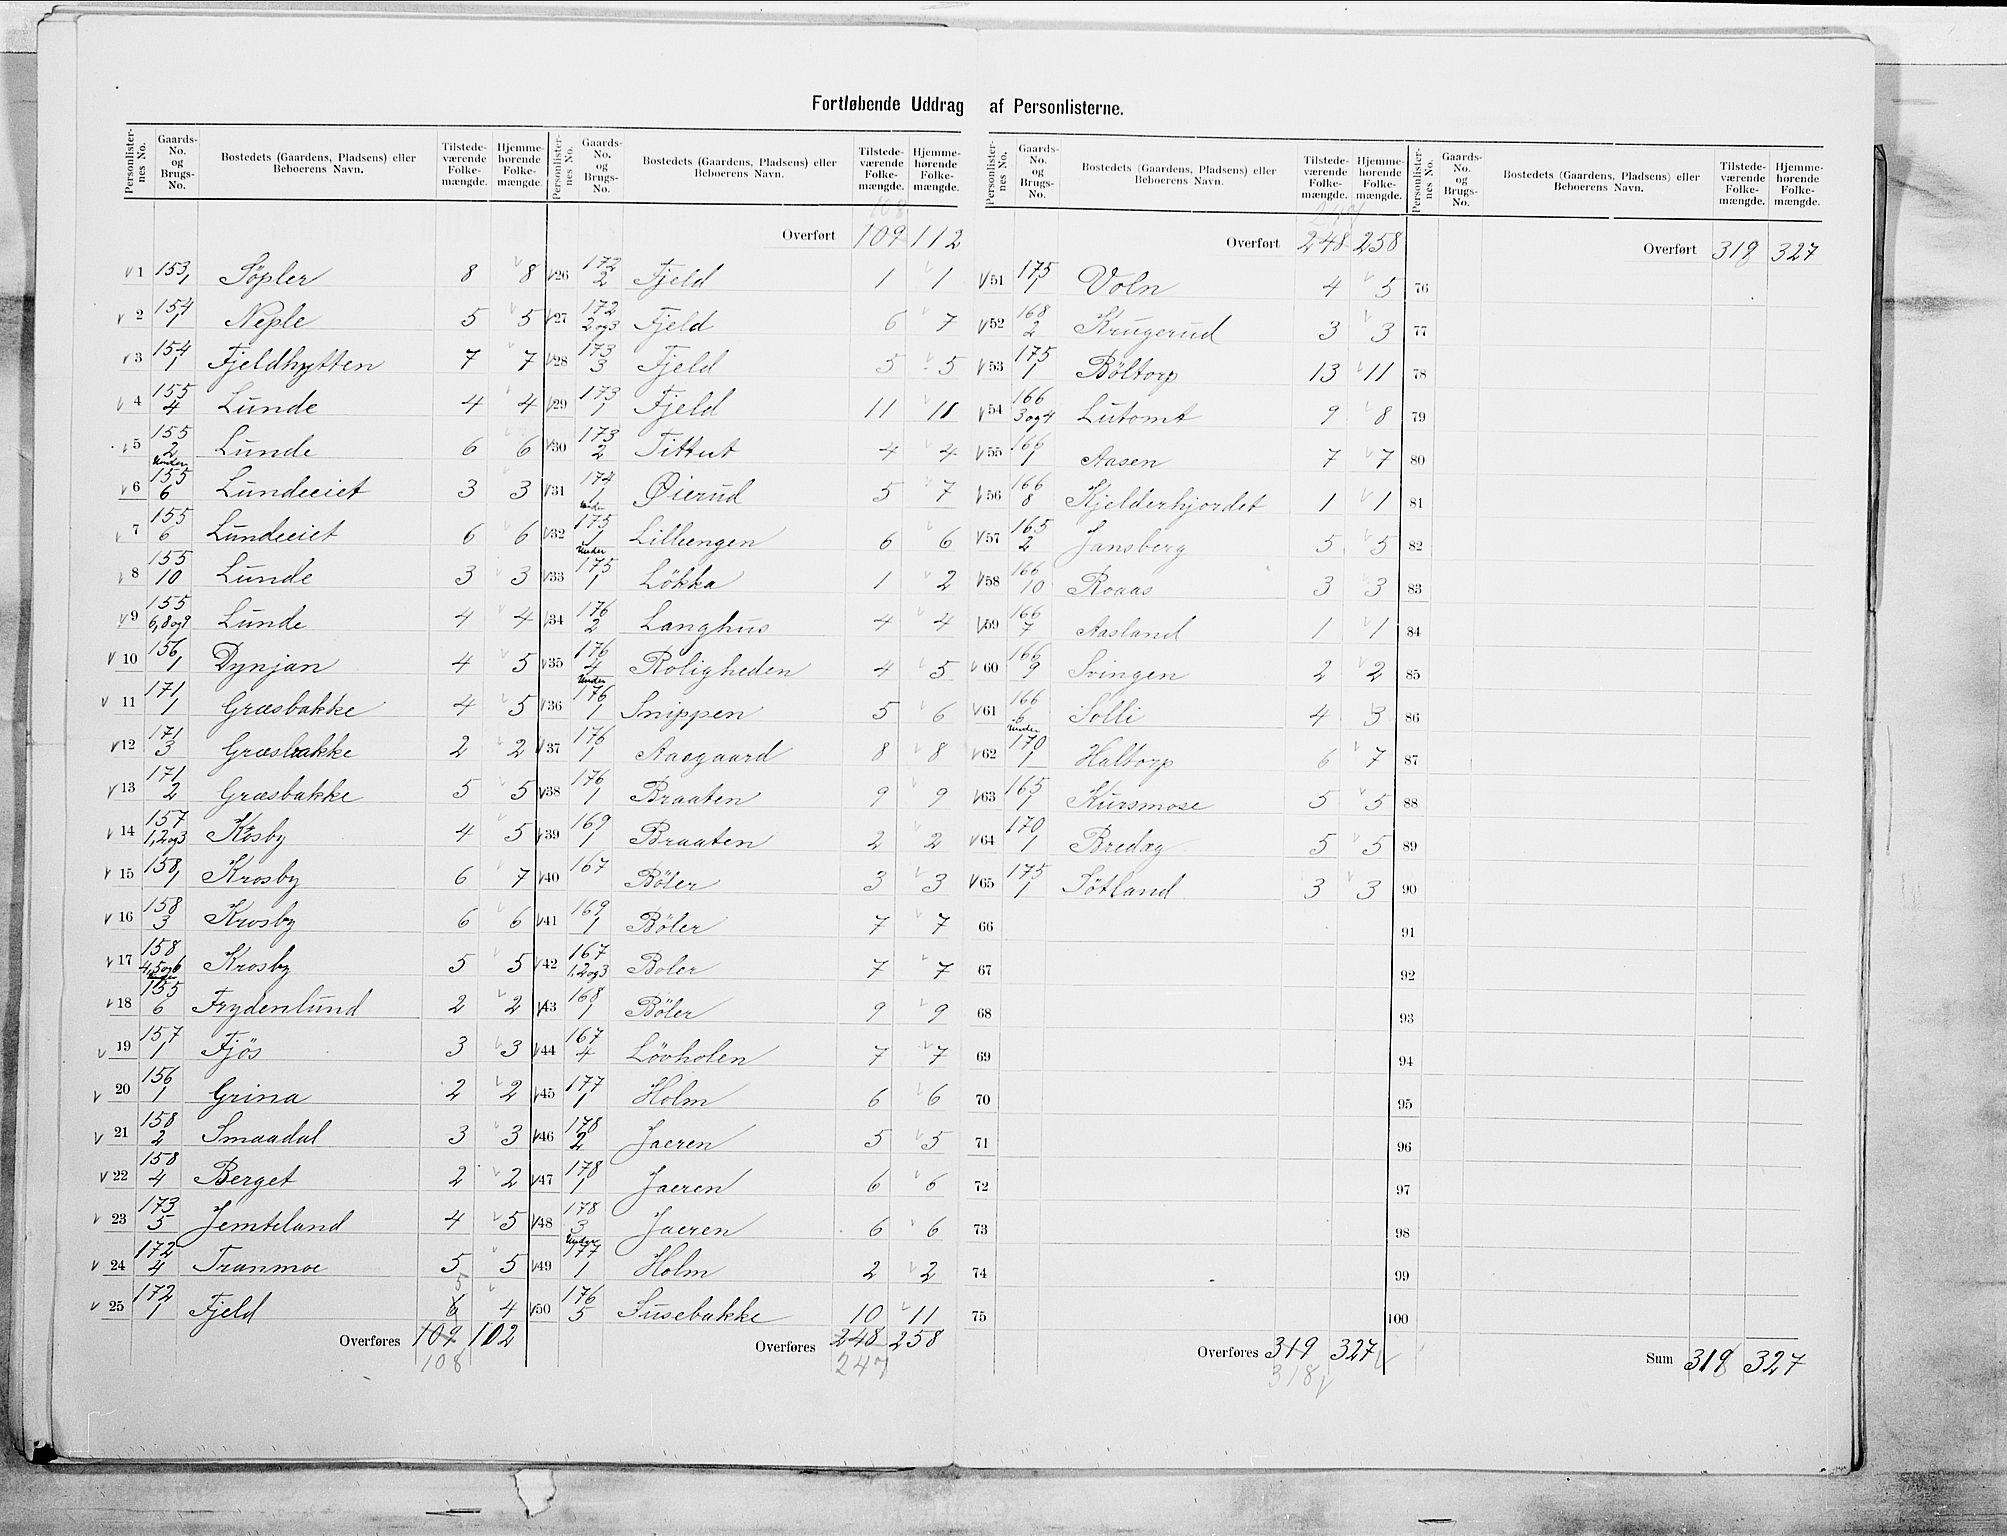 Fortløbende Uddrag af Personlisterne.
Personlisternes No. Gaards-No. og Brugs-No. Bostedets (Gaardens, Pladsens) eller Beboerens Navn. Tilstedeværende Folkemængde. Hjemmehørende Folkemængde.
1 153/1 Søpler 8 8
2 154/1 Neple 5 5
3 154/1 Fjeldhytten 7 7
4 155/4 Lunde 4 4
5 155/2 Lunde 6 6
6 Under 155/6 Lundeeiet 3 3
7 155/6 Lundeeiet 6 6
8 155/10 Lunde 3 3
9 155/6,8og9 Lunde 4 4
10 156/1 Dynjan 4 5
11 171/1 Græsbakke 4 5
12 171/3 Græsbakke 2 2
13 171/2 Græsbakke 5 5
14 157/1,2og3 Krosby 4 5
15 158/1 Krosby 6 7
16 158/3 Krosby 6 6
17 158/4,5og6 Krosby 5 5
18 Under 155/6 Frydenlund 2 2
19 157/1 Fjøs 3 3
20 156/1 Grina 2 2
21 158/2 Smaadal 3 3
22 158/4 Berget 2 2
23 173/5 Jemteland 4 5
24 172/4 Tranmoe 5 5
25 172/1 Fjeld 6 5 4
Overføres 109 102
108
Personlisternes No. Gaards-No. og Brugs-No. Bostedets (Gaardens, Pladsens) eller Beboerens Navn. Tilstedeværende Folkemængde. Hjemmehørende Folkemængde.
108
Overført 109 112
26 172/2 Fjeld 1 1
27 172/2og3 Fjeld 6 7
28 173/3 Fjeld 5 5
29 173/1 Fjeld 11 11
30 173/2 Tittut 4 4
31 174/1 Øierud 5 7
32 Under 175/1 Lilleengen 6 6
33 Under 175/1 Løkka 1 2
34 176/2 Langhus 4 4
35 176/4 Roligheden 4 5
36 Under 176/1 Snippen 5 6
37 176/1 Aasgaard 8 8
38 176/1 Braaten 9 9
39 169/1 Braaten 2 2
40 167 Bøler 3 3
41 169/1 Bøler 7 7
42 167/1,2og3 Bøler 7 7
43 168/1 Bøler 9 9
44 167/4 Løvholen 7 7
45 177/1 Holm 6 6
46 178/2 Jaeren 5 5
47 178/1 Jaeren 6 6
48 178/3 Jaeren 6 6
49 Under 177/1 Holm 2 2
50 176/5 Susebakke 10 11
Overføres 248 258
247
Personlisternes No. Gaards-No. og Brugs-No. Bostedets (Gaardens, Pladsens) eller Beboerens Navn. Tilstedeværende Folkemængde. Hjemmehørende Folkemængde.
247
Overført 248 258
51 175/1 Voln 4 5
52 168/2 Krugerud 3 3
53 175/1 Bøltorp 13 11
54 166/3og4 Lutomt 9 8
55 166/1 Aasen 7 7
56 166/8 Kjelderhjordet 1 1
57 165/2 Jansberg 5 5
58 166/10 Roaas 3 3
59 166/7 Aasland 1 1
60 166/9 Svingen 2 2
61 166/6 Solli 4 3
62 Under 170/1 Haltorp 6 7
63 165/1 Kursmose 5 5
64 170/1 Bredag 5 5
65 175/1 Søtland 3 3
66
67
68
69
70
71
72
73
74
75
Overføres 319 327
318
Personlisternes No. Gaards-No. og Brugs-No. Bostedets (Gaardens, Pladsens) eller Beboerens Navn. Tilstedeværende Folkemængde. Hjemmehørende Folkemængde.
Overført 318 327
76
77
78
79
80
81
82
83
84
85
86
87
88
89
90
91
92
93
94
95
96
97
98
99
100
Sum 318 327